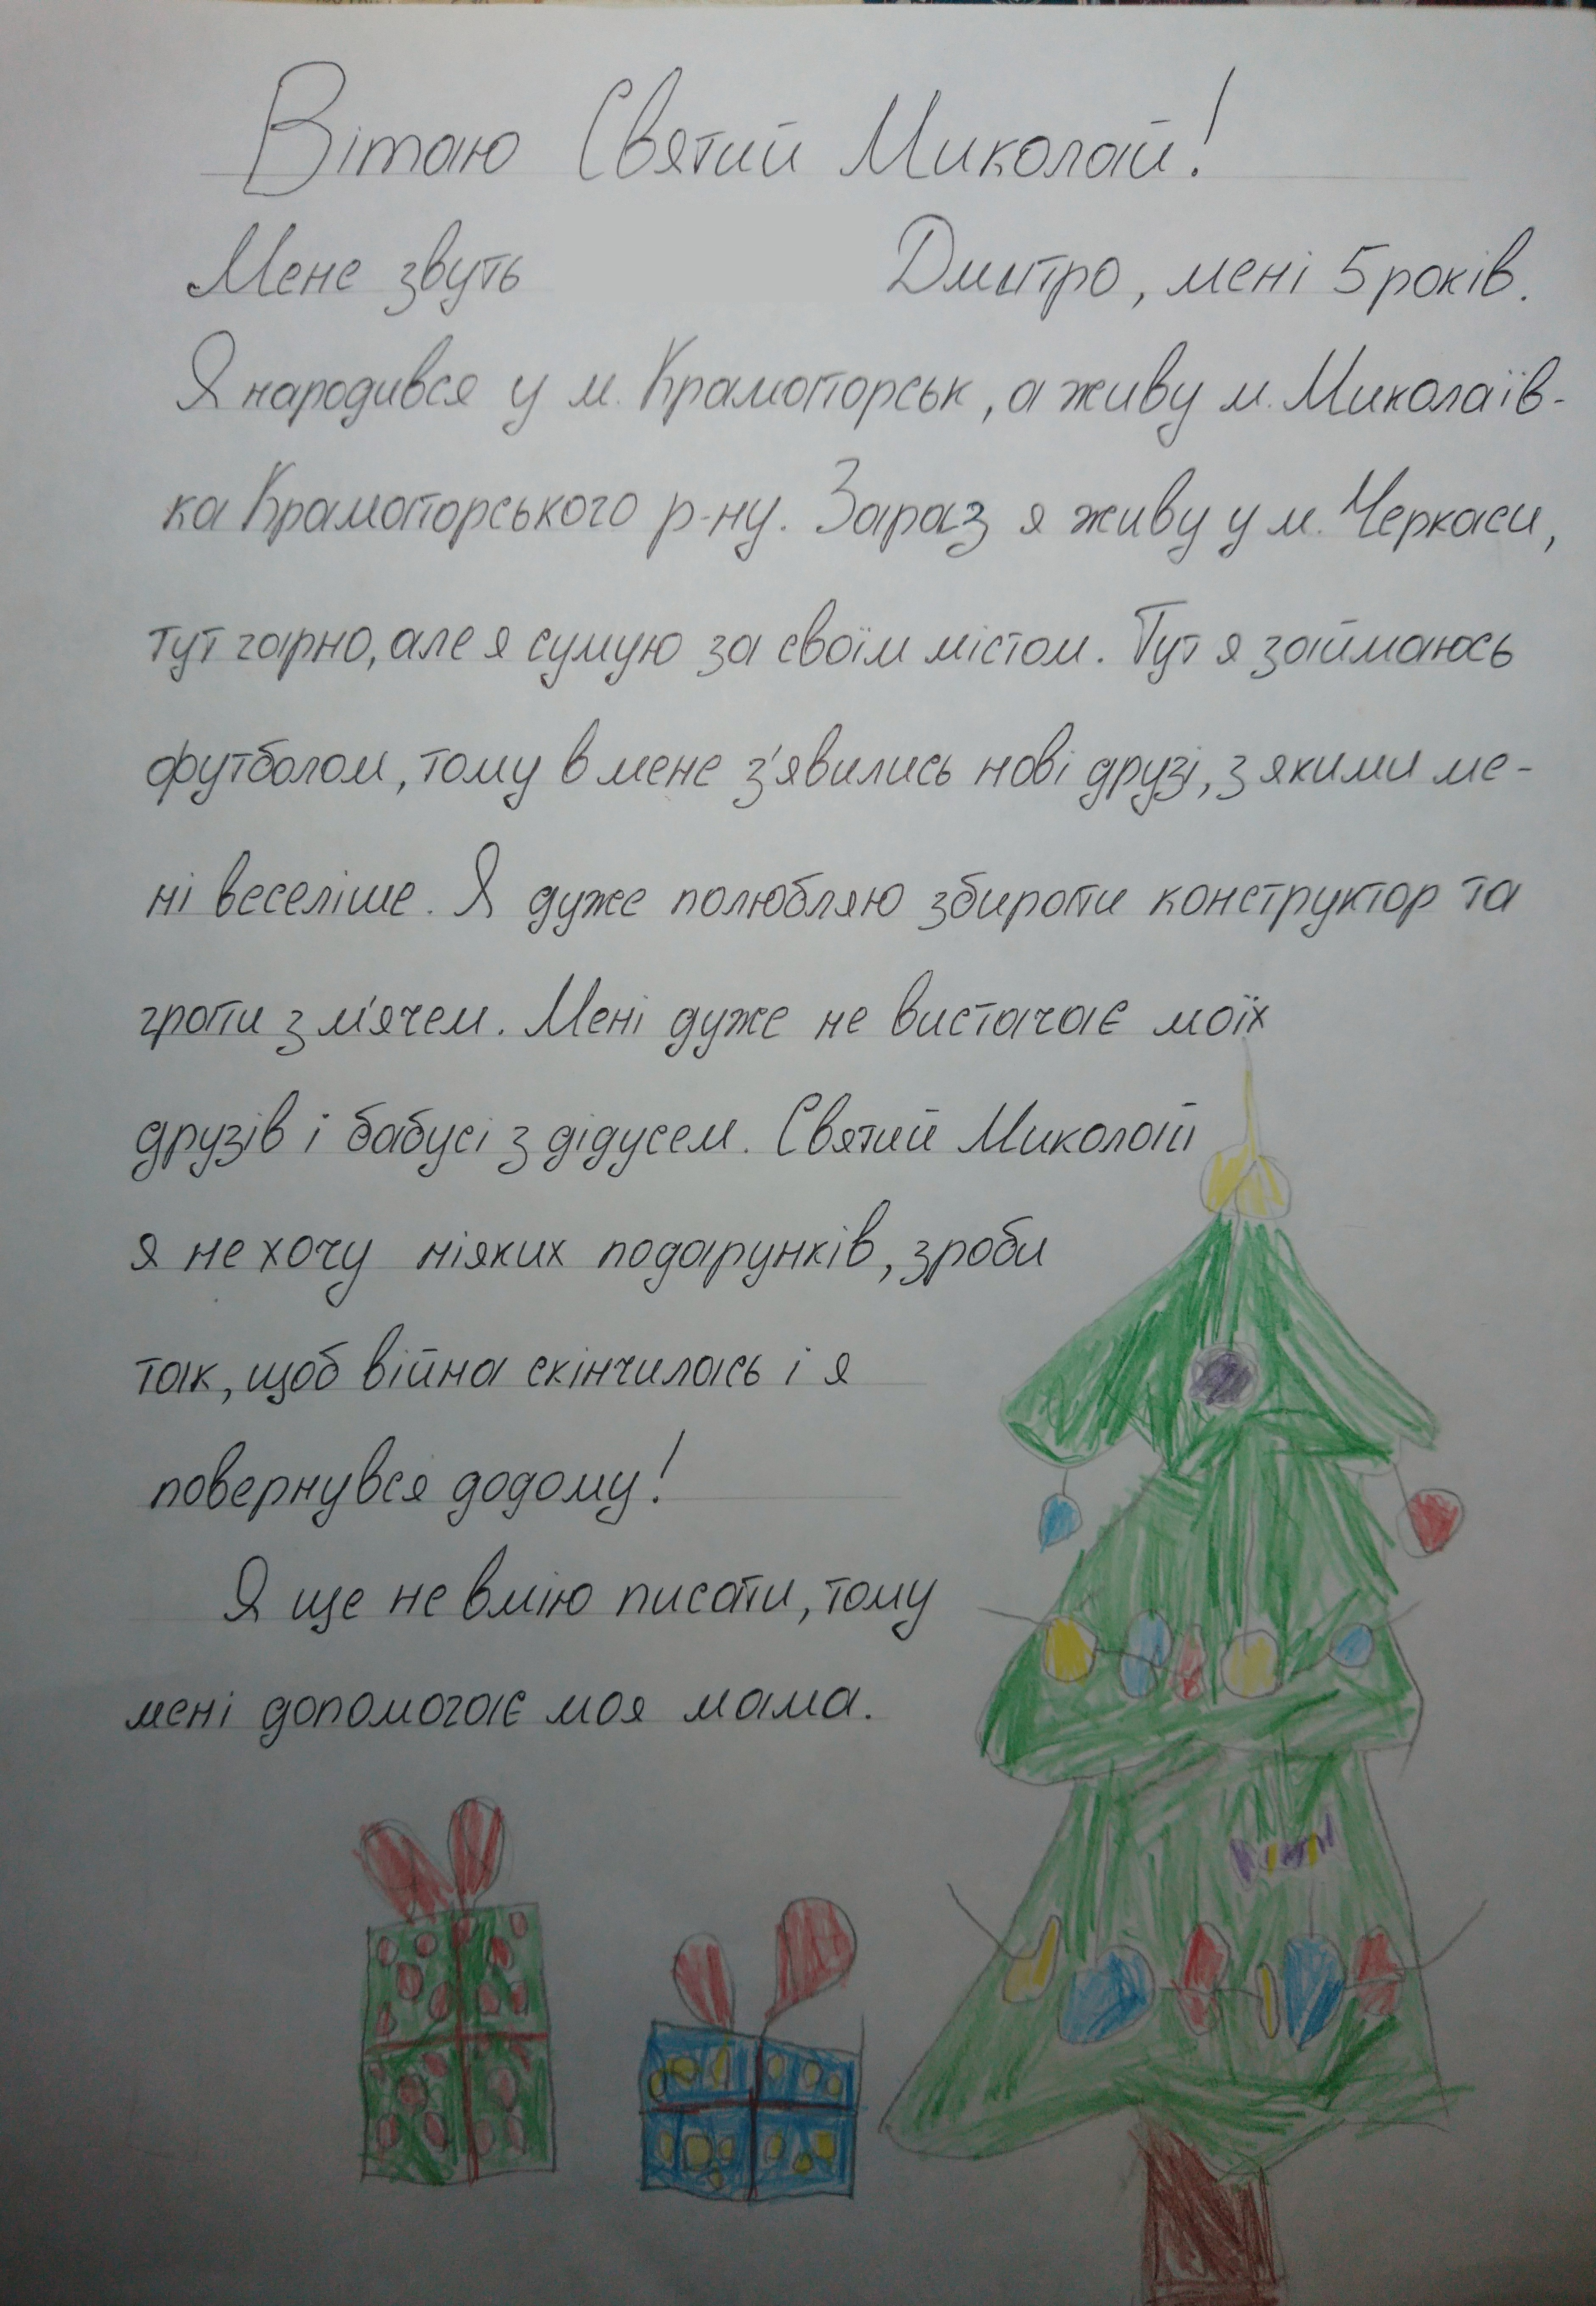 Вітаю Святий Миколай!
Мене звуть Дмитро, мені 5 років.
Я народився у м. Краматорськ, а живу м. Миколаїв-
ка Краматорського р-ну. Зараз я живу у м. Черкаси,
тут гарно, але я сумую за своїм містом. Тут я займаюсь
футболом, тому в мене з'явились нові друзі, з якими ме-
ні веселіше. Я дуже полюбляю збирати конструктор та
грати з м'ячем. Мені дуже не вистачає моїх
друзів і бабусі з дідусем. Святий Миколай
я не хочу ніяких подарунків, зроби
так, щоб війна скінчилась і я
повернувся додому!
Я ще не вмію писати, тому
мені допомогає моя мама.